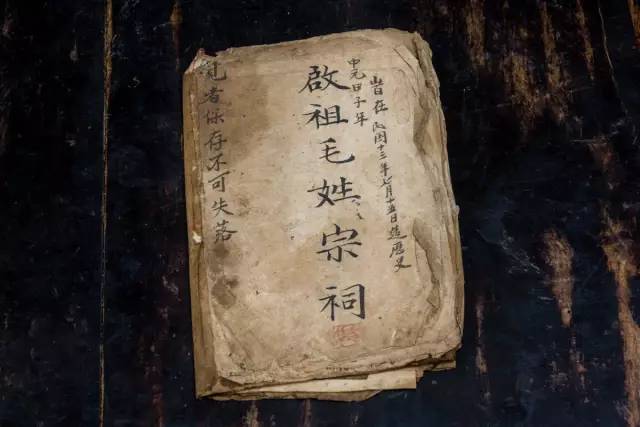 旹在民国十三年七月十五日造历史
中元甲子年
啟祖毛姓宗祠
者保存不可失落